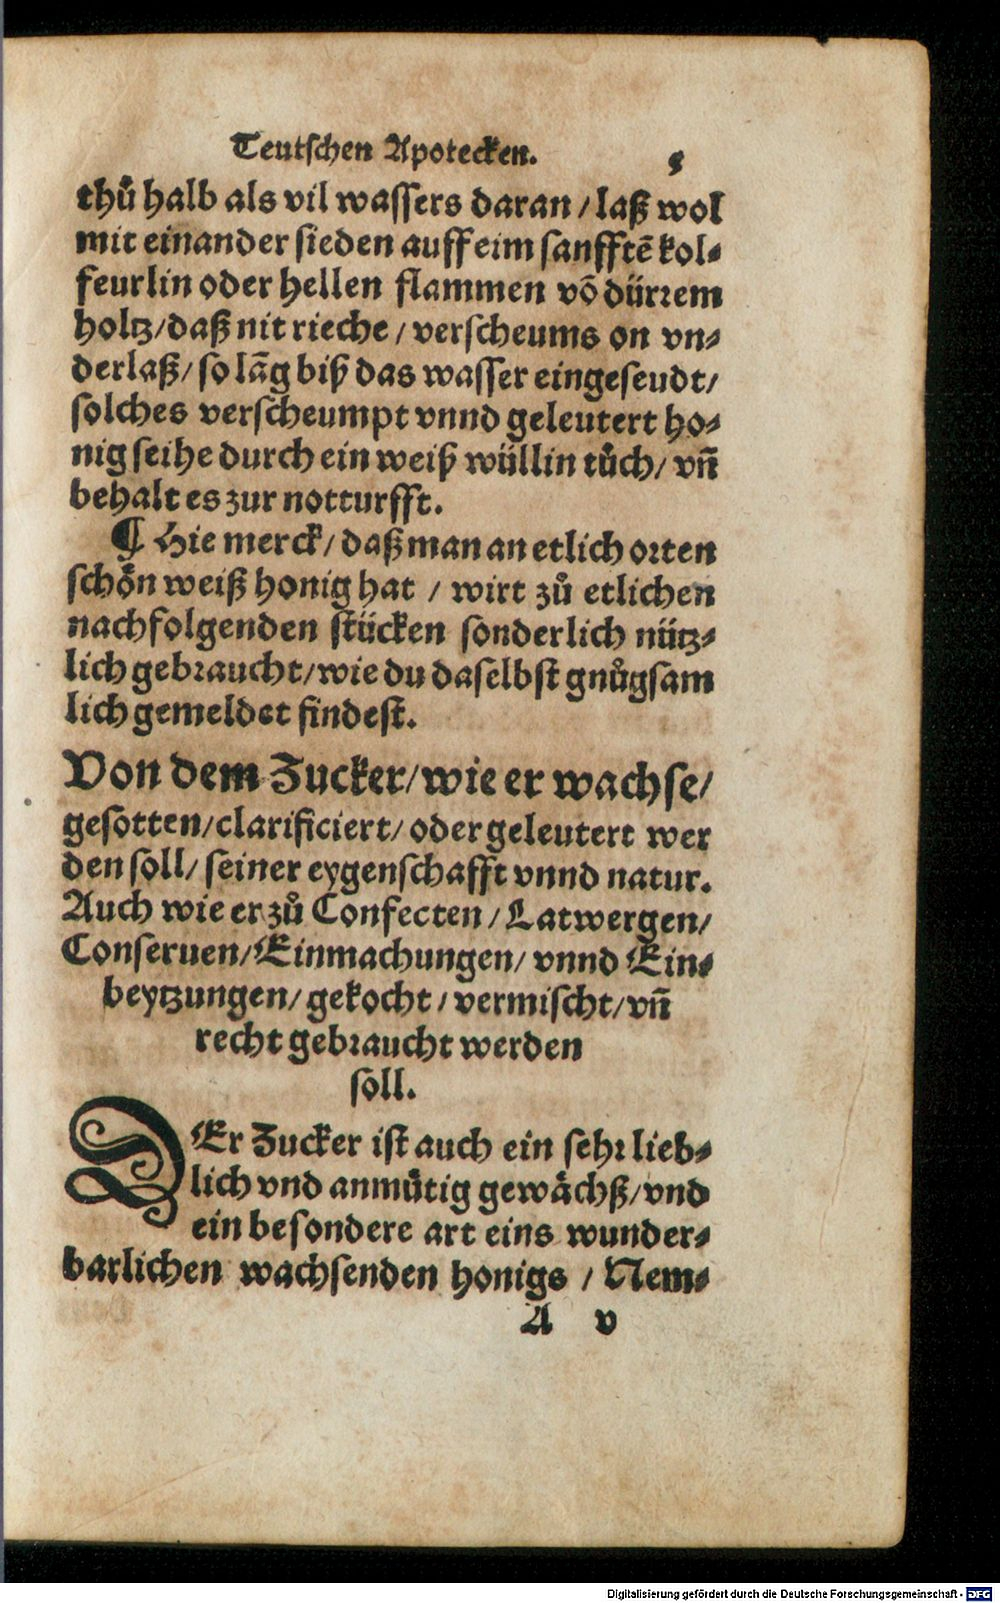 Teutschen Apotecken. 5
thů halb als vil wassers daran / laß wol
mit einander sieden auff eim sanfftē kol⸗
feurlin oder hellen flammen vō dürrem
holtz / daß nit rieche / verscheums on vn⸗
derlaß / so lāg biß das wasser eingeseudt /
solches verscheumpt vnnd geleutert ho⸗
nig seihe durch ein weiß wüllin tůch / vñ
behalt es zur notturfft.
¶ Hie merck / daß man an etlich orten
schön weiß honig hat / wirt zů etlichen
nachfolgenden stücken sonderlich nütz⸗
lich gebraucht / wie du daselbst gnůgsam
lich gemeldet findest.
Von dem Zucker / wie er wachse /
gesotten / clarificiert / oder geleutert wer
den soll / seiner eygenschafft vnnd natur.
Auch wie er zů Confecten / Latwergen /
Conseruen / Einmachungen / vnnd Ein⸗
beytzungen / gekocht / vermischt / vñ
recht gebraucht werden
soll.
DEr Zucker ist auch ein sehr lieb⸗
lich vnd anmůtig gewächß / vnd
ein besondere art eins wunder⸗
barlichen wachsenden honigs / Nem⸗
A v
Digitalisierung gefördert durch die Deutsche Forschungsgemeinschaft - DFG